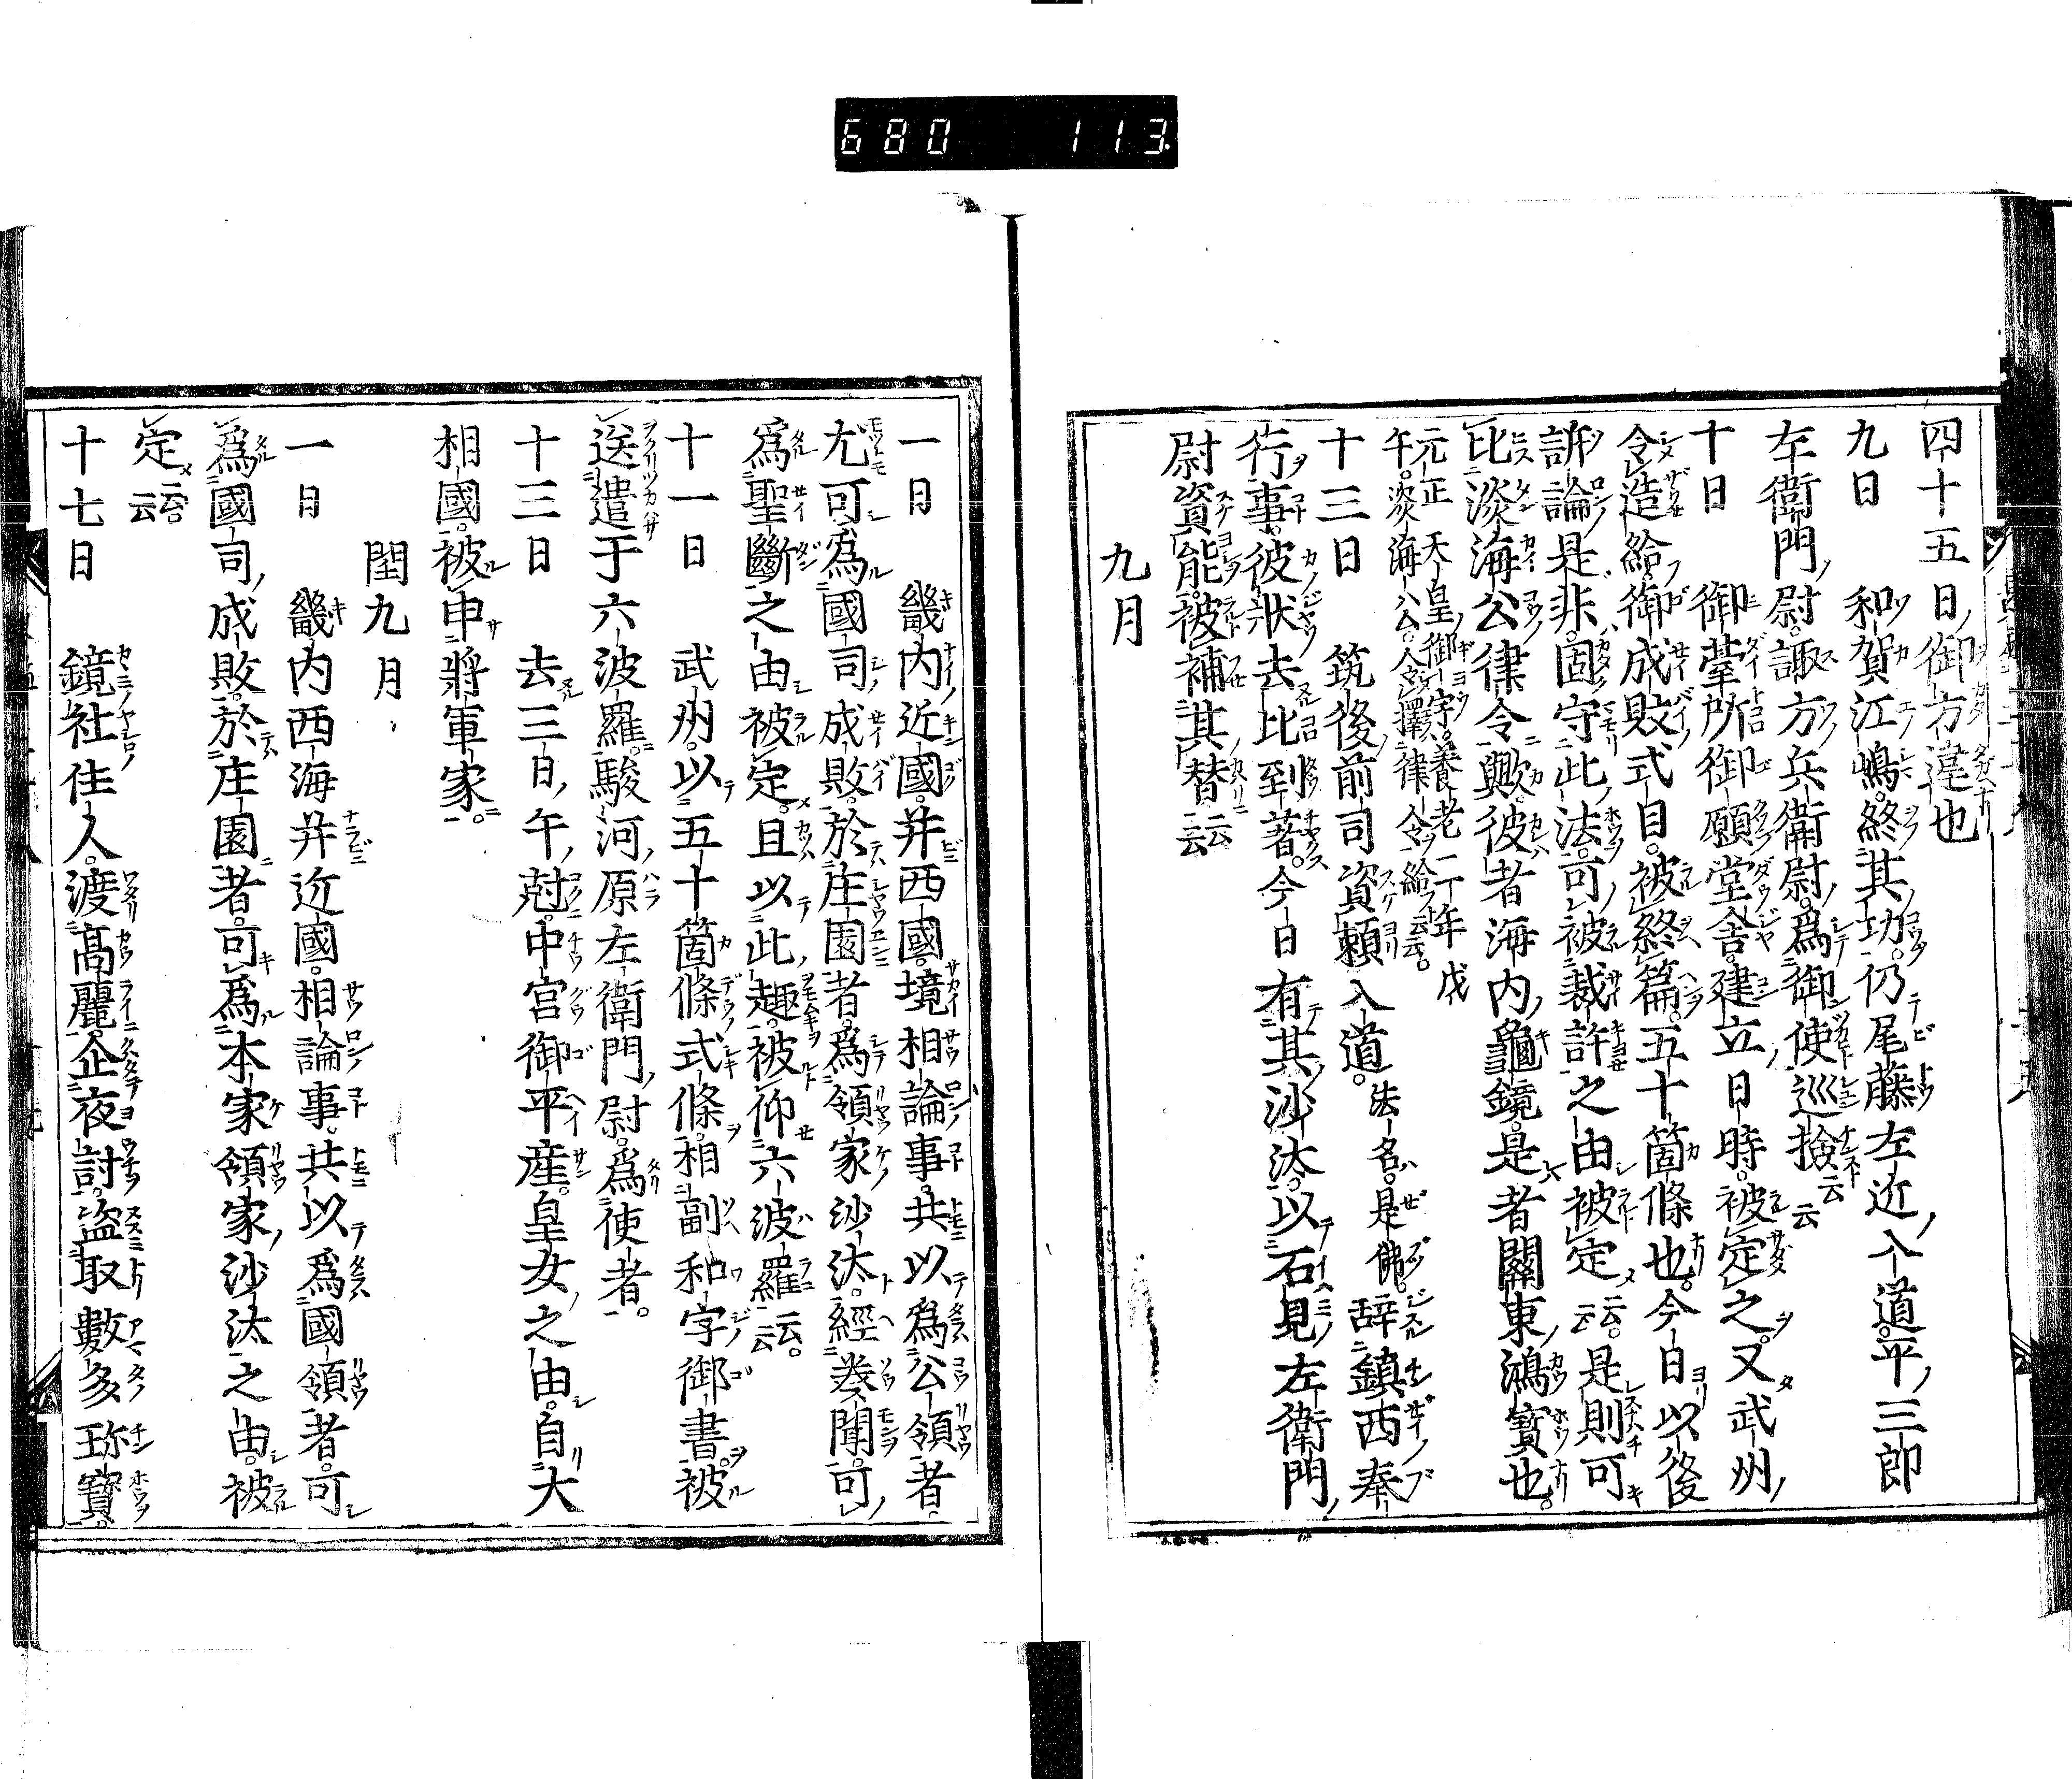 680 113
四十五日御方違也
九日 和賀江嶋終其功。仍尾藤左近入道。平三郎
左衛門尉。諏方兵衛尉。爲御使巡撿云云
十日 御臺所御願堂舎。建立日時。被定之。又武州
令造給。御成敗式目。被終篇。五十箇條也。今日以後
訴論是非。固守此法。可被裁許之由被定云云。是則可
比淡海公律令歟。彼者海内龜鏡。是者關東鴻寳也。
元正天皇御宇。養老二年戊
午。淡海公。令擇律令給云云。
十三日 筑後前司資頼入道。法名。是佛。辞鎮西奉
行事。彼狀去比到著。今日有其沙汰。以石見左衛門
尉資能。被補其替云云
九月
一日 畿内近國。并西國境相論事。共以爲公領者。
尤可爲國司成敗。於庄園者。爲領家沙汰。經奏聞。可
爲聖斷之由被定。且以此趣。被仰六波羅云云。
十一日 武州。以五十箇條式條。相副和字御書。被
送遣于六波羅。駿河原左衛門尉。爲使者。
十三日 去三日。午尅。中宮御平産。皇女之由。自大
相國。被申將軍家。
閏九月
一日 畿内西海并近國。相論事。共以爲國領者。可
爲國司成敗。於庄園者。可爲本家領家沙汰之由。被
定云云。
十七日 鏡社住人。渡髙麗。企夜討。盗取數多珎寳。